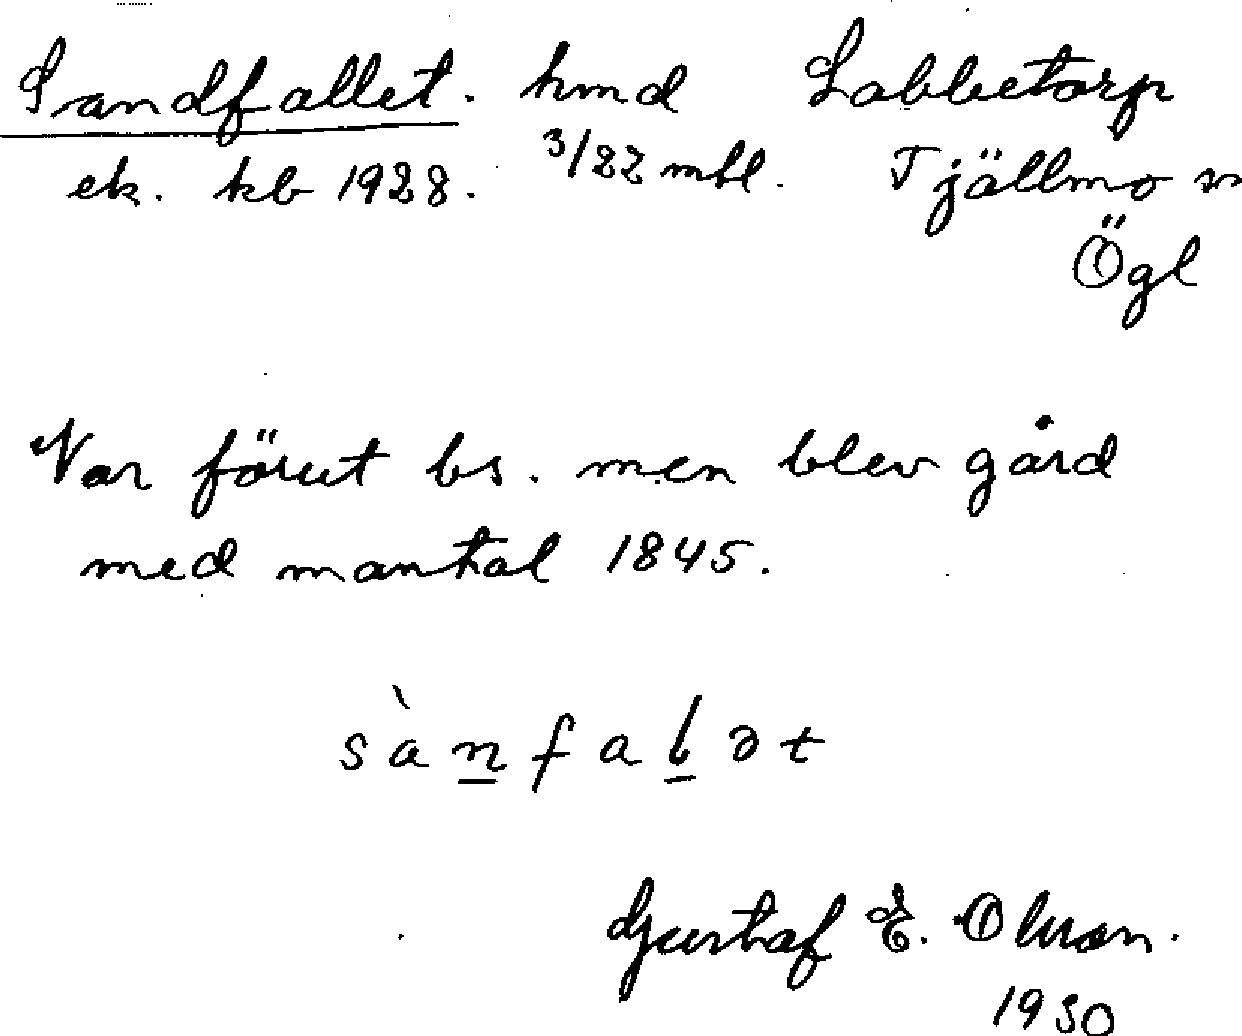 Sandfallet. hmd Labbetorp
ek. kb 1928. 3/22 mtl. Tjällmo sn
Ögl
Var förut bs. men blev gård
med mantal 1845.
sànfalət
Gustaf E. Olsson.
1930